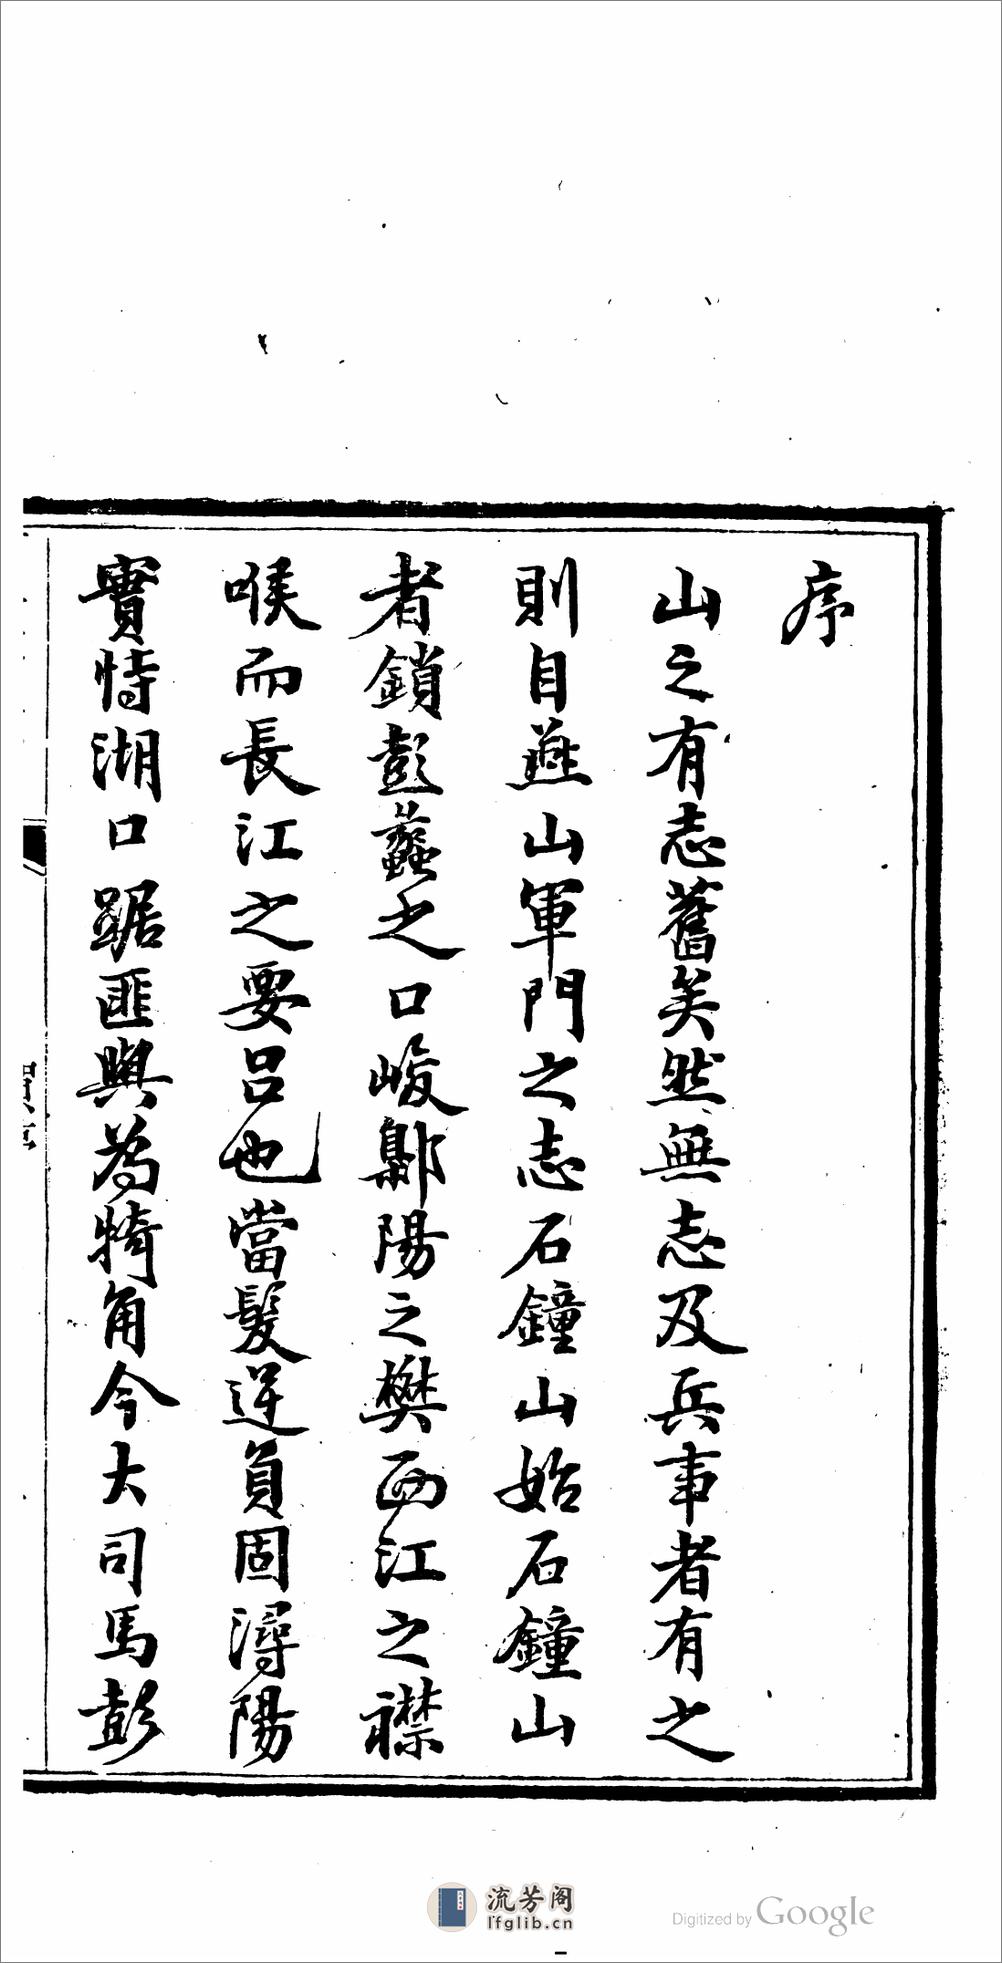 序
山之有志舊矣然無志及兵事者有之
則自燕山軍門之志石鐘山始石鐘山
者鎖彭蠡之口峻鄡陽之樊西江之襟
喉而長江之要呂也當髮逆負固潯陽
實恃湖口踞匪與為犄角今大司馬彭
流芳阁
lfglib.cn
Digitized by Google